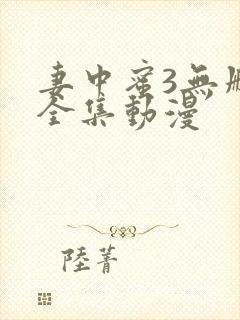 妻中蜜3無
全集動漫
陸菁